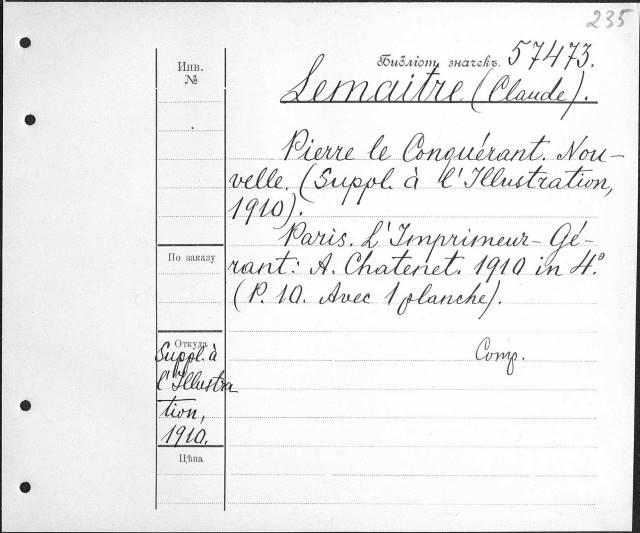 235
Инв.
№
Библіот. значекъ. 57473.
Lemaitre (Claude).
Pierre le Conquérant. Nou-
velle. (Suppl. à l'Illustration,
1910).
Paris. L'Imprimeur-Gé-
rant: A. Chatenet. 1910 in 4°.
(P. 10. Avec 1 planche).
По заказу
Откуда
Suppl. à
l'Illustra
tion,
1910.
Comp.
Цѣна